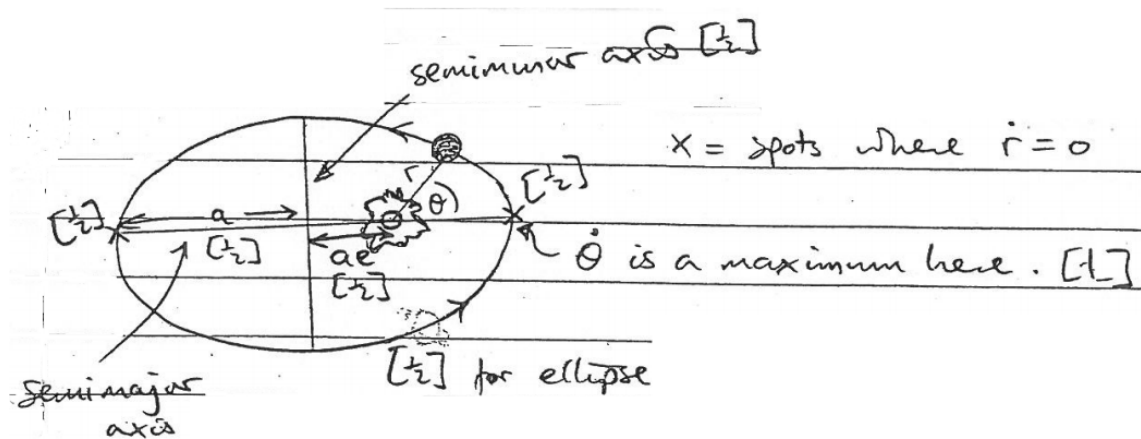 semiminor axis [½]
x = spots where ṙ = 0
r
θ
[½]
[½]
a
[½]
ae
[½]
θ̇ is a maximum here. [1]
[½] for ellipse
semimajor
axis